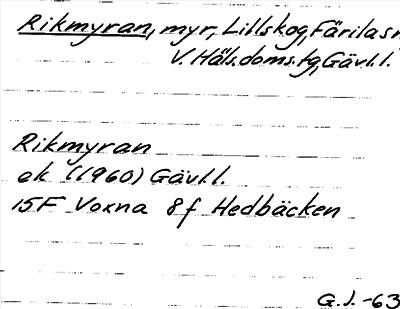 Rikmyran, myr, Lillskog, Färilasn
V. Häls.doms.tg, Gävl.l.
Rikmyran
ek (1960) Gävl.l.
15F Voxna 8f Hedbäcken
G.J. -63